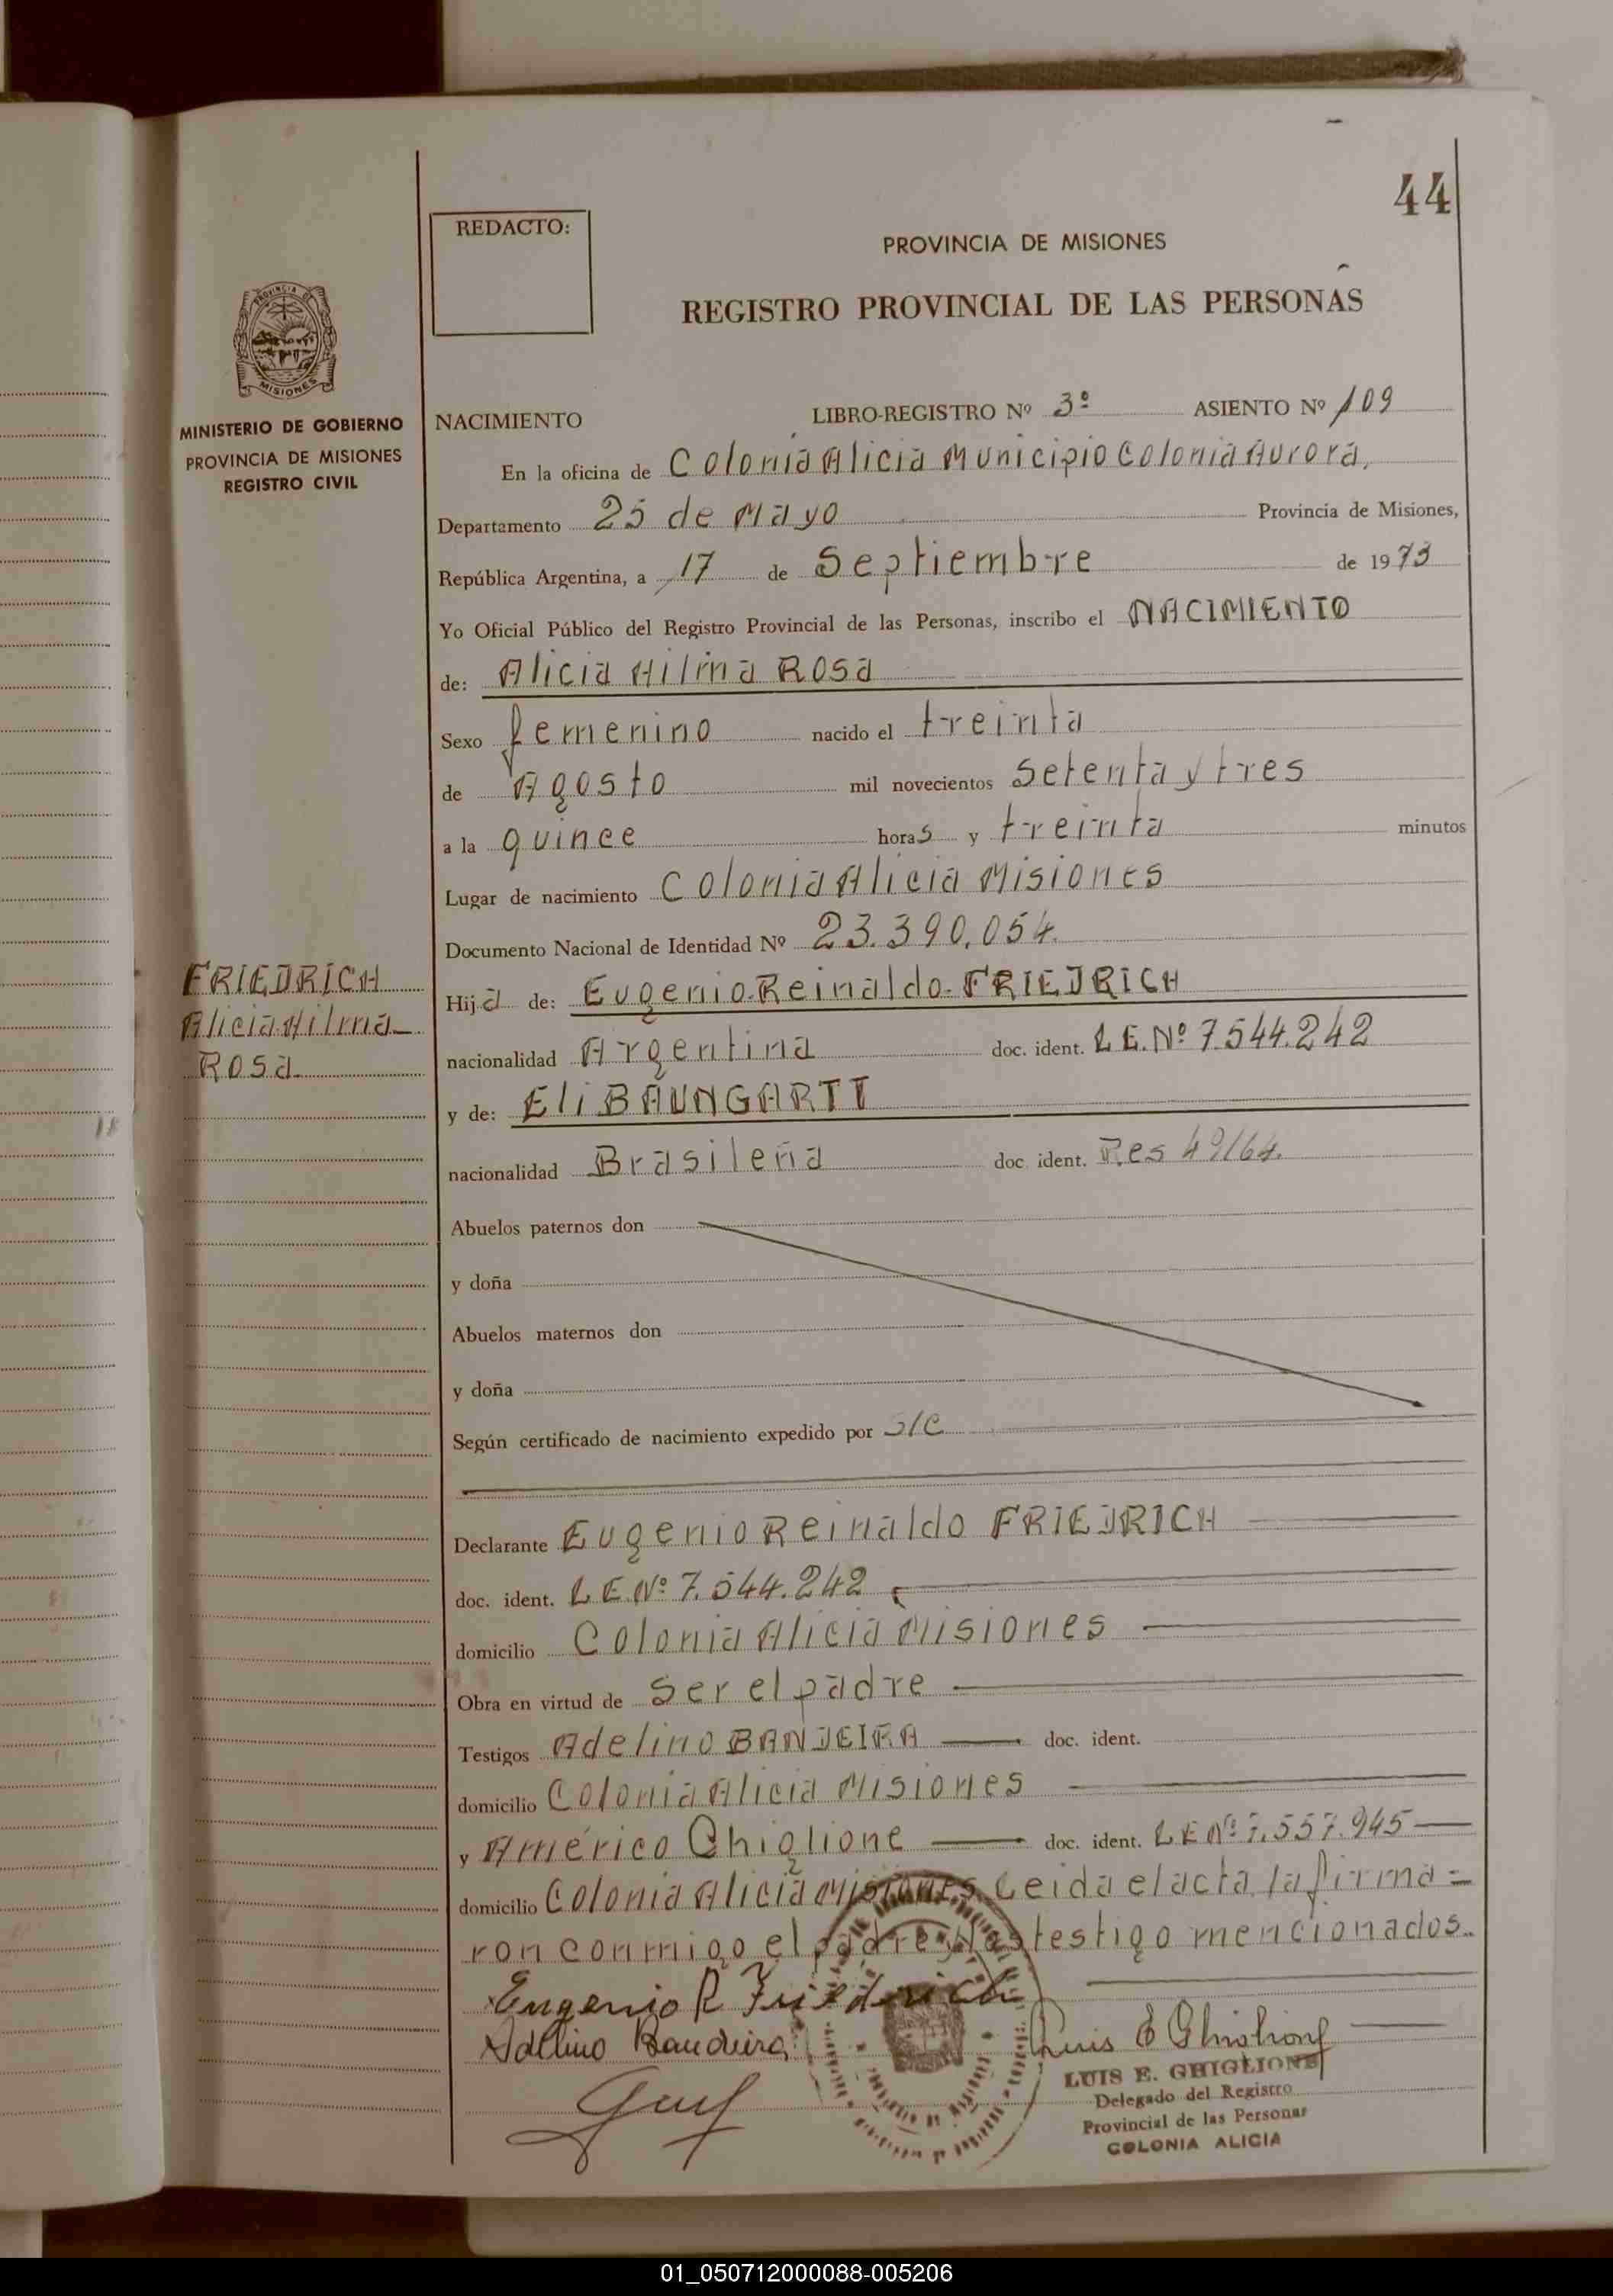 44
REDACTO:
PROVINCIA DE MISIONES
REGISTRO PROVINCIAL DE LAS PERSONAS
PROVINCIA DE
MISIONES
MINISTERIO DE GOBIERNO
PROVINCIA DE MISIONES
REGISTRO CIVIL
NACIMIENTO LIBRO-REGISTRO Nº 3º ASIENTO Nº 109
En la oficina de Colonia Alicia Municipio Colonia Aurora,
Departamento 25 de Mayo Provincia de Misiones,
República Argentina, a 17 de Septiembre de 1973
Yo Oficial Público del Registro Provincial de las Personas, inscribo el NACIMIENTO
de: Alicia Hilma Rosa
Sexo femenino nacido el treinta
de Agosto mil novecientos Setenta y tres
a la quince horas y treinta minutos
Lugar de nacimiento Colonia Alicia Misiones
Documento Nacional de Identidad Nº 23.390.054.
FRIEDRICH
Alicia Hilma
Rosa
Hija de: Eugenio Reinaldo FRIEDRICH
nacionalidad Argentina doc. ident. L.E. Nº 7.544.242
y de: Eli BAUNGARTT
nacionalidad Brasileña doc ident. Res 49/64.
Abuelos paternos don
y doña
Abuelos maternos don
y doña
Según certificado de nacimiento expedido por S/C
Declarante Eugenio Reinaldo FRIEDRICH
doc. ident. L E. Nº 7.544.242
domicilio Colonia Alicia Misiones
Obra en virtud de Ser el padre
Testigos Adelino BANDEIRA doc. ident.
domicilio Colonia Alicia Misiones
y Américo Ghiglione doc. ident. L E Nº 7.557.945
domicilio Colonia Alicia Misiones Leida el acta, la firma=
ron conmigo el padre y los testigo mencionados.
Eugenio R Friederich
Adelino Bandeira
Luis E Ghiglione
LUIS E. GHIGLIONE
Delegado del Registro
Provincial de las Personas
COLONIA ALICIA
01_050712000088-005206